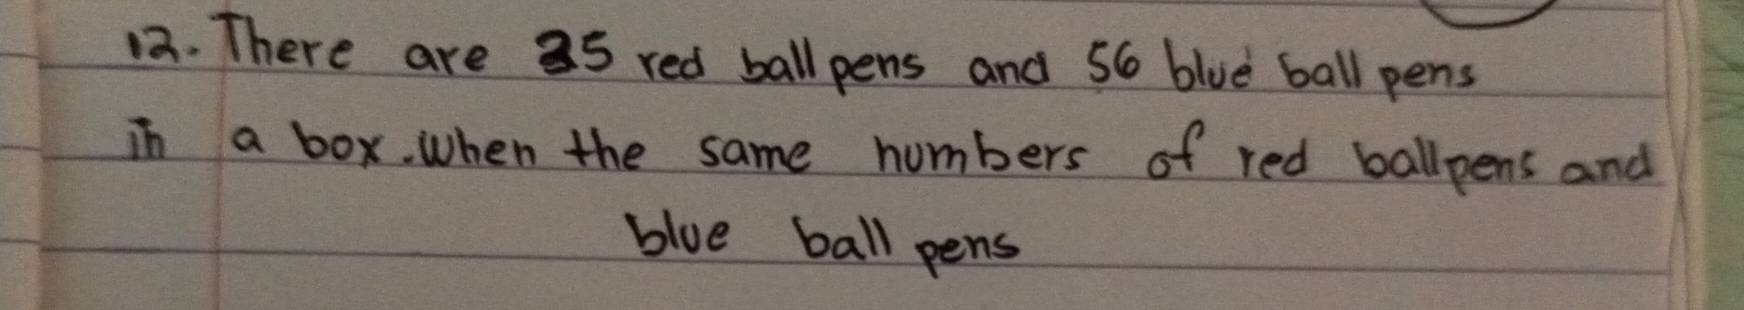 12. There are 35 red ball pens and 56 blue ball pens
in a box. When the same numbers of red ballpens and
blue ball pens